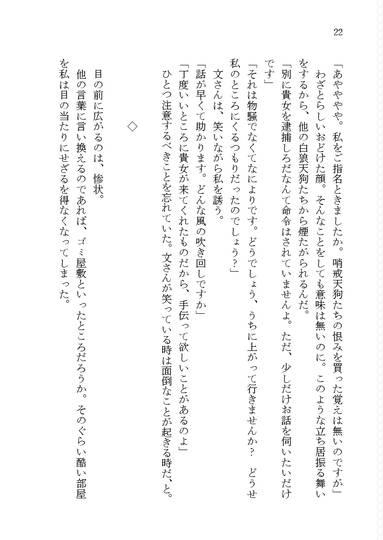 22
「あやややや。私をご指名ときましたか。哨戒天狗たちの恨みを買った覚えは無いのですが」
わざとらしいおどけた顔。そんなことをしても意味は無いのに。このような立ち居振る舞い
をするから、他の白狼天狗たちから煙たがられるんだ。
「別に貴女を逮捕しろだなんて命令はされていませんよ。ただ、少しだけお話を伺いたいだけ
です」
「それは物騒でなくてなによりです。どうでしょう、うちに上がって行きませんか？　どうせ
私のところにくるつもりだったのでしょう？」
文さんは、笑いながら私を誘う。
「話が早くて助かります。どんな風の吹き回しですか」
「丁度いいところに貴女が来てくれたものだから、手伝って欲しいことがあるのよ」
ひとつ注意するべきことを忘れていた。文さんが笑っている時は面倒なことが起きる時だ、と。
◇
目の前に広がるのは、惨状。
他の言葉に言い換えるのであれば、ゴミ屋敷といったところだろうか。そのぐらい酷い部屋
を私は目の当たりにせざるを得なくなってしまった。